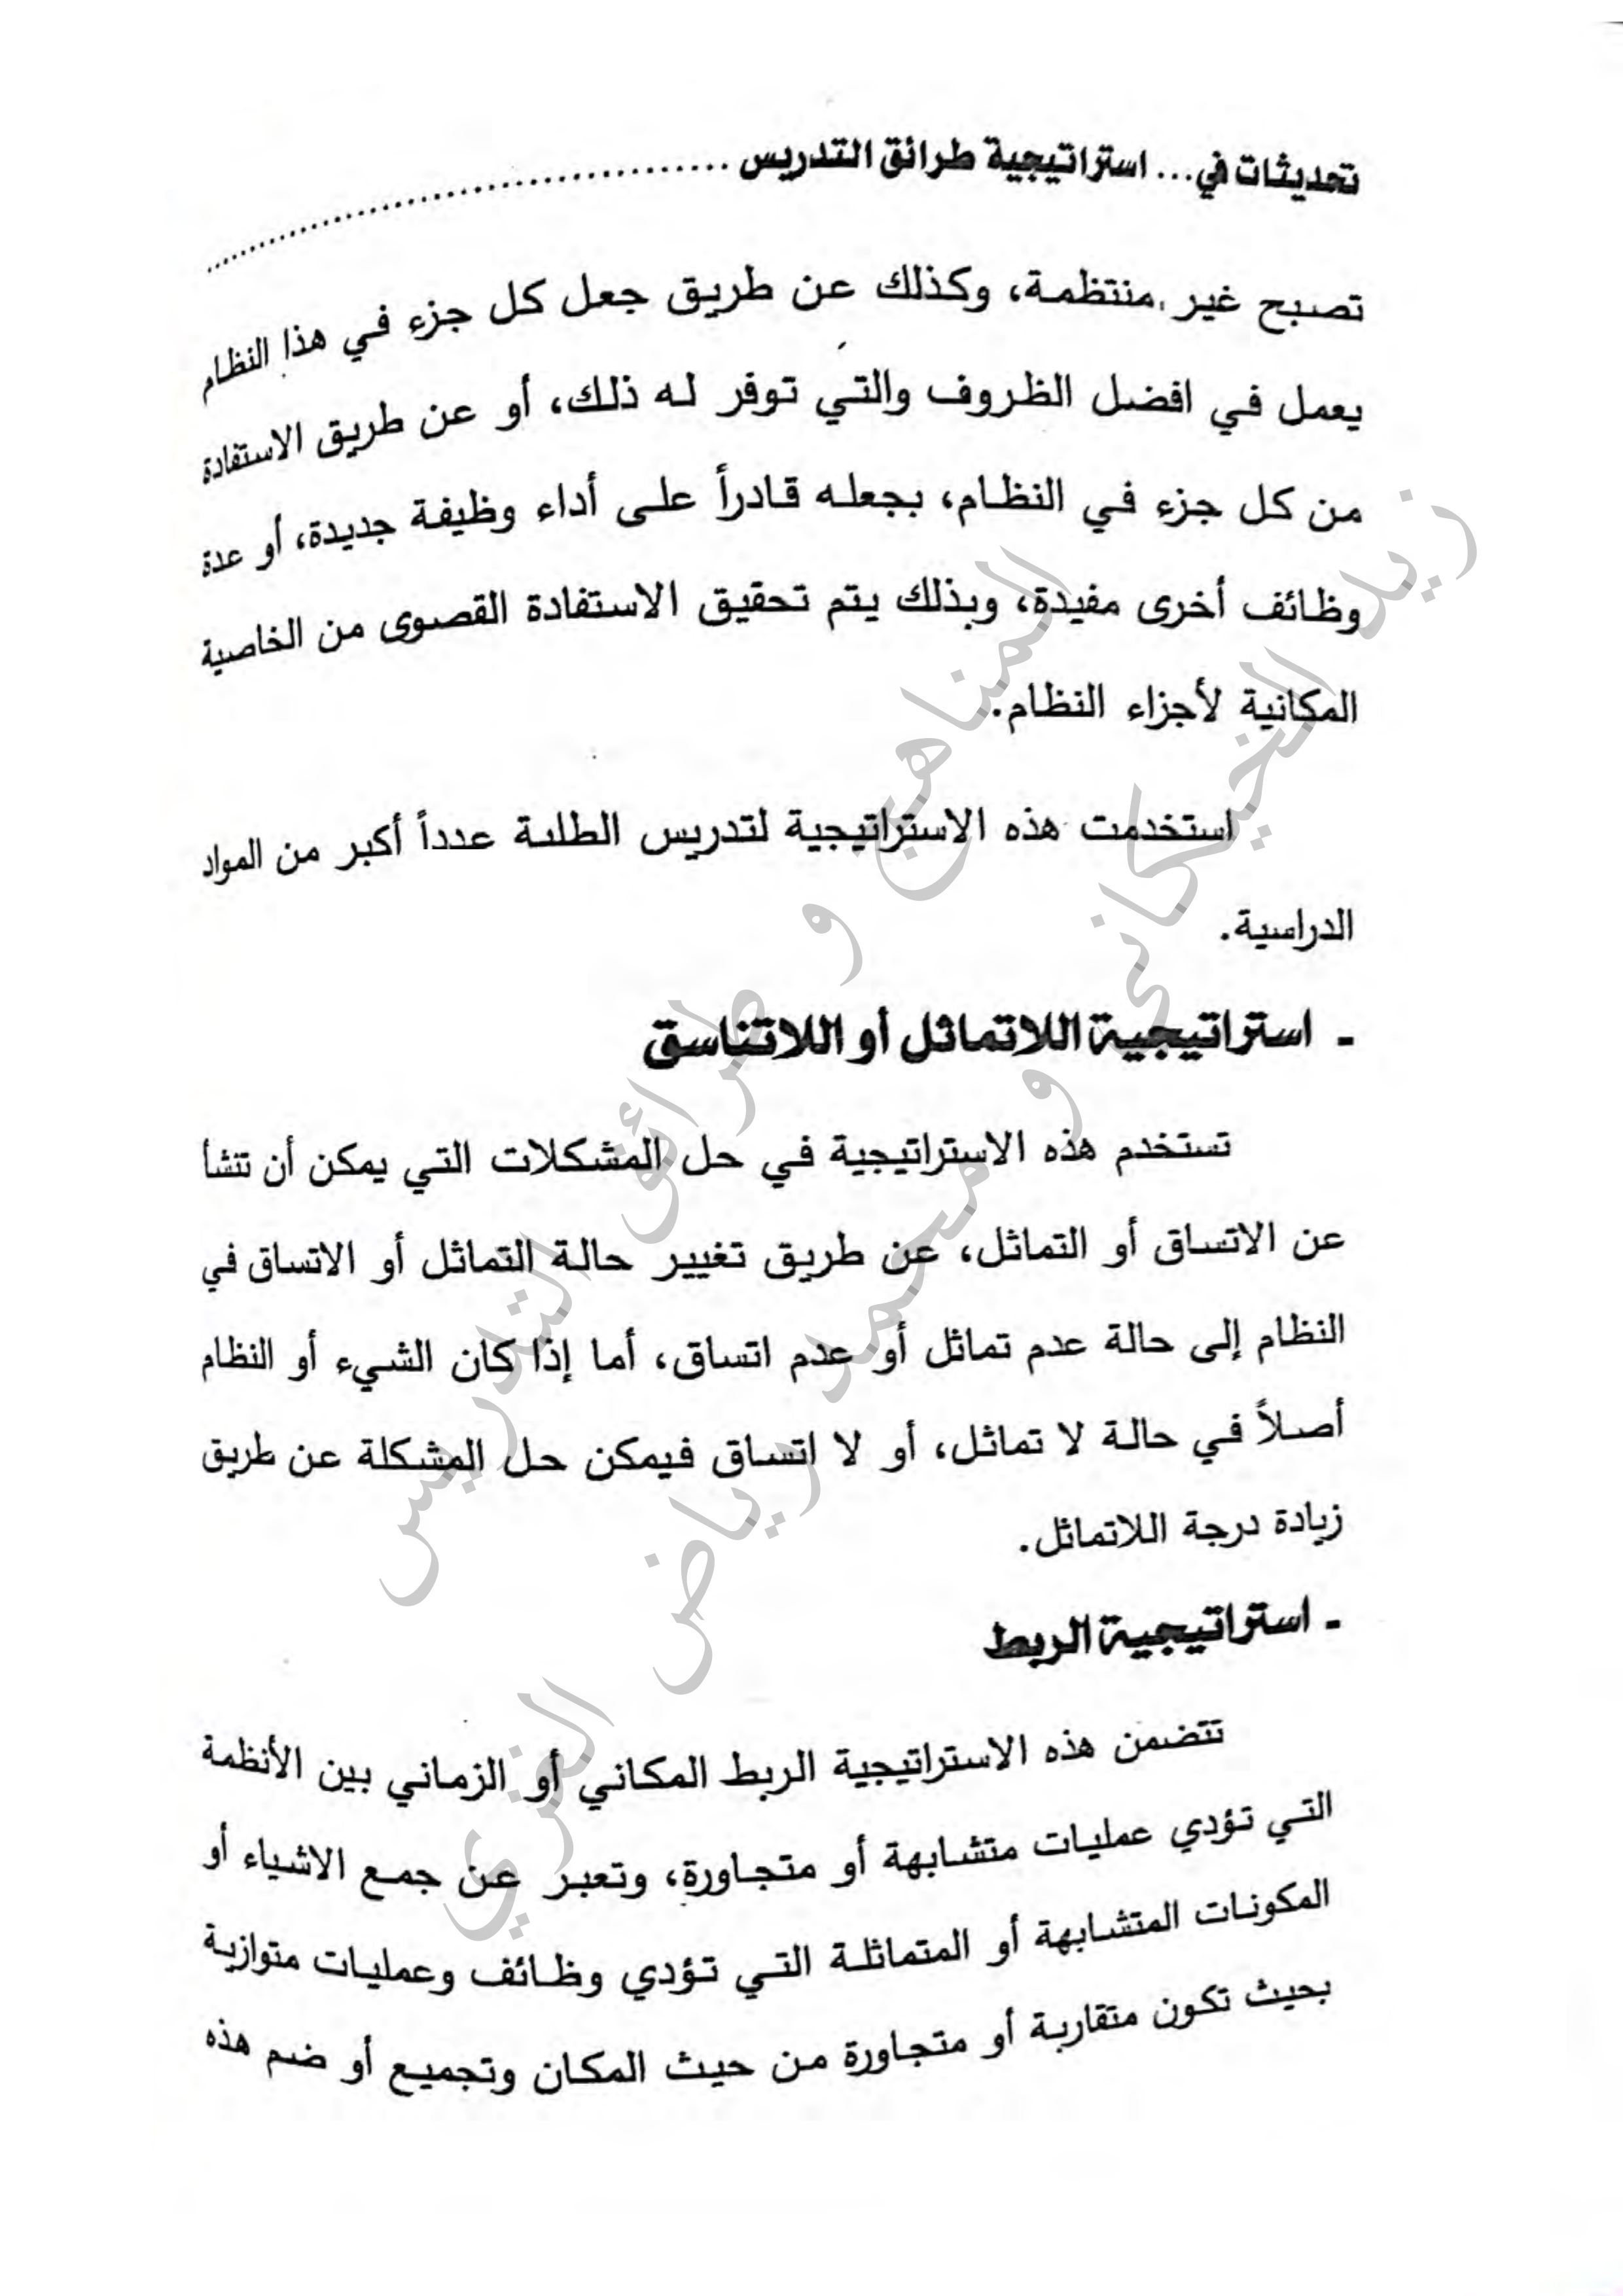 تحديثات في... استراتيجية طرائق التدريس ......................................
تصبح غير منتظمة، وكذلك عن طريق جعل كل جزء في هذا النظام
يعمل في افضل الظروف والتي توفر له ذلك، أو عن طريق الاستفادة
من كل جزء في النظام، بجعله قادراً على أداء وظيفة جديدة، أو عدة
وظائف أخرى مفيدة، وبذلك يتم تحقيق الاستفادة القصوى من الخاصية
المكانية لأجزاء النظام.
استخدمت هذه الاستراتيجية لتدريس الطلبة عدداً أكبر من المواد
الدراسية.
- استراتيجية اللاتماثل أو اللاتناسق
تستخدم هذه الاستراتيجية في حل المشكلات التي يمكن أن تنشأ
عن الاتساق أو التماثل، عن طريق تغيير حالة التماثل أو الاتساق في
النظام إلى حالة عدم تماثل أو عدم اتساق، أما إذا كان الشيء أو النظام
أصلاً في حالة لا تماثل، أو لا اتساق فيمكن حل المشكلة عن طريق
زيادة درجة اللاتماثل.
- استراتيجية الربط
تتضمن هذه الاستراتيجية الربط المكاني أو الزماني بين الأنظمة
التي تؤدي عمليات متشابهة أو متجاورة، وتعبر عن جمع الاشياء أو
المكونات المتشابهة أو المتماثلة التي تؤدي وظائف وعمليات متوازية
بحيث تكون متقاربة أو متجاورة من حيث المكان وتجميع أو ضم هذه
المناهج و طرائق التدريس
زيد الخيكاني و محمد رياض الغزي